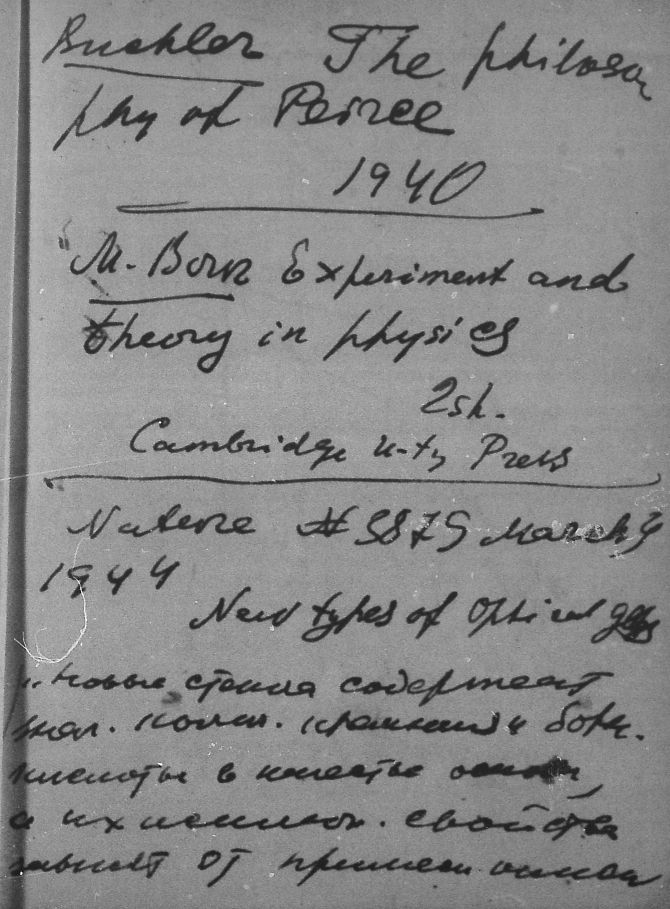 Buchler The philoso
phy of Peirce
1940
M. Born Experiment and
theory in physics
2sh.
Cambridge U-ty Press
Nature # 3879 March 4
1944
New types of Optical glass
"Новые стекла содержат
мал. колич. кремния и борн.
кислоты в качестве основы,
а их исключ. свойства
зависят от примеси окиси